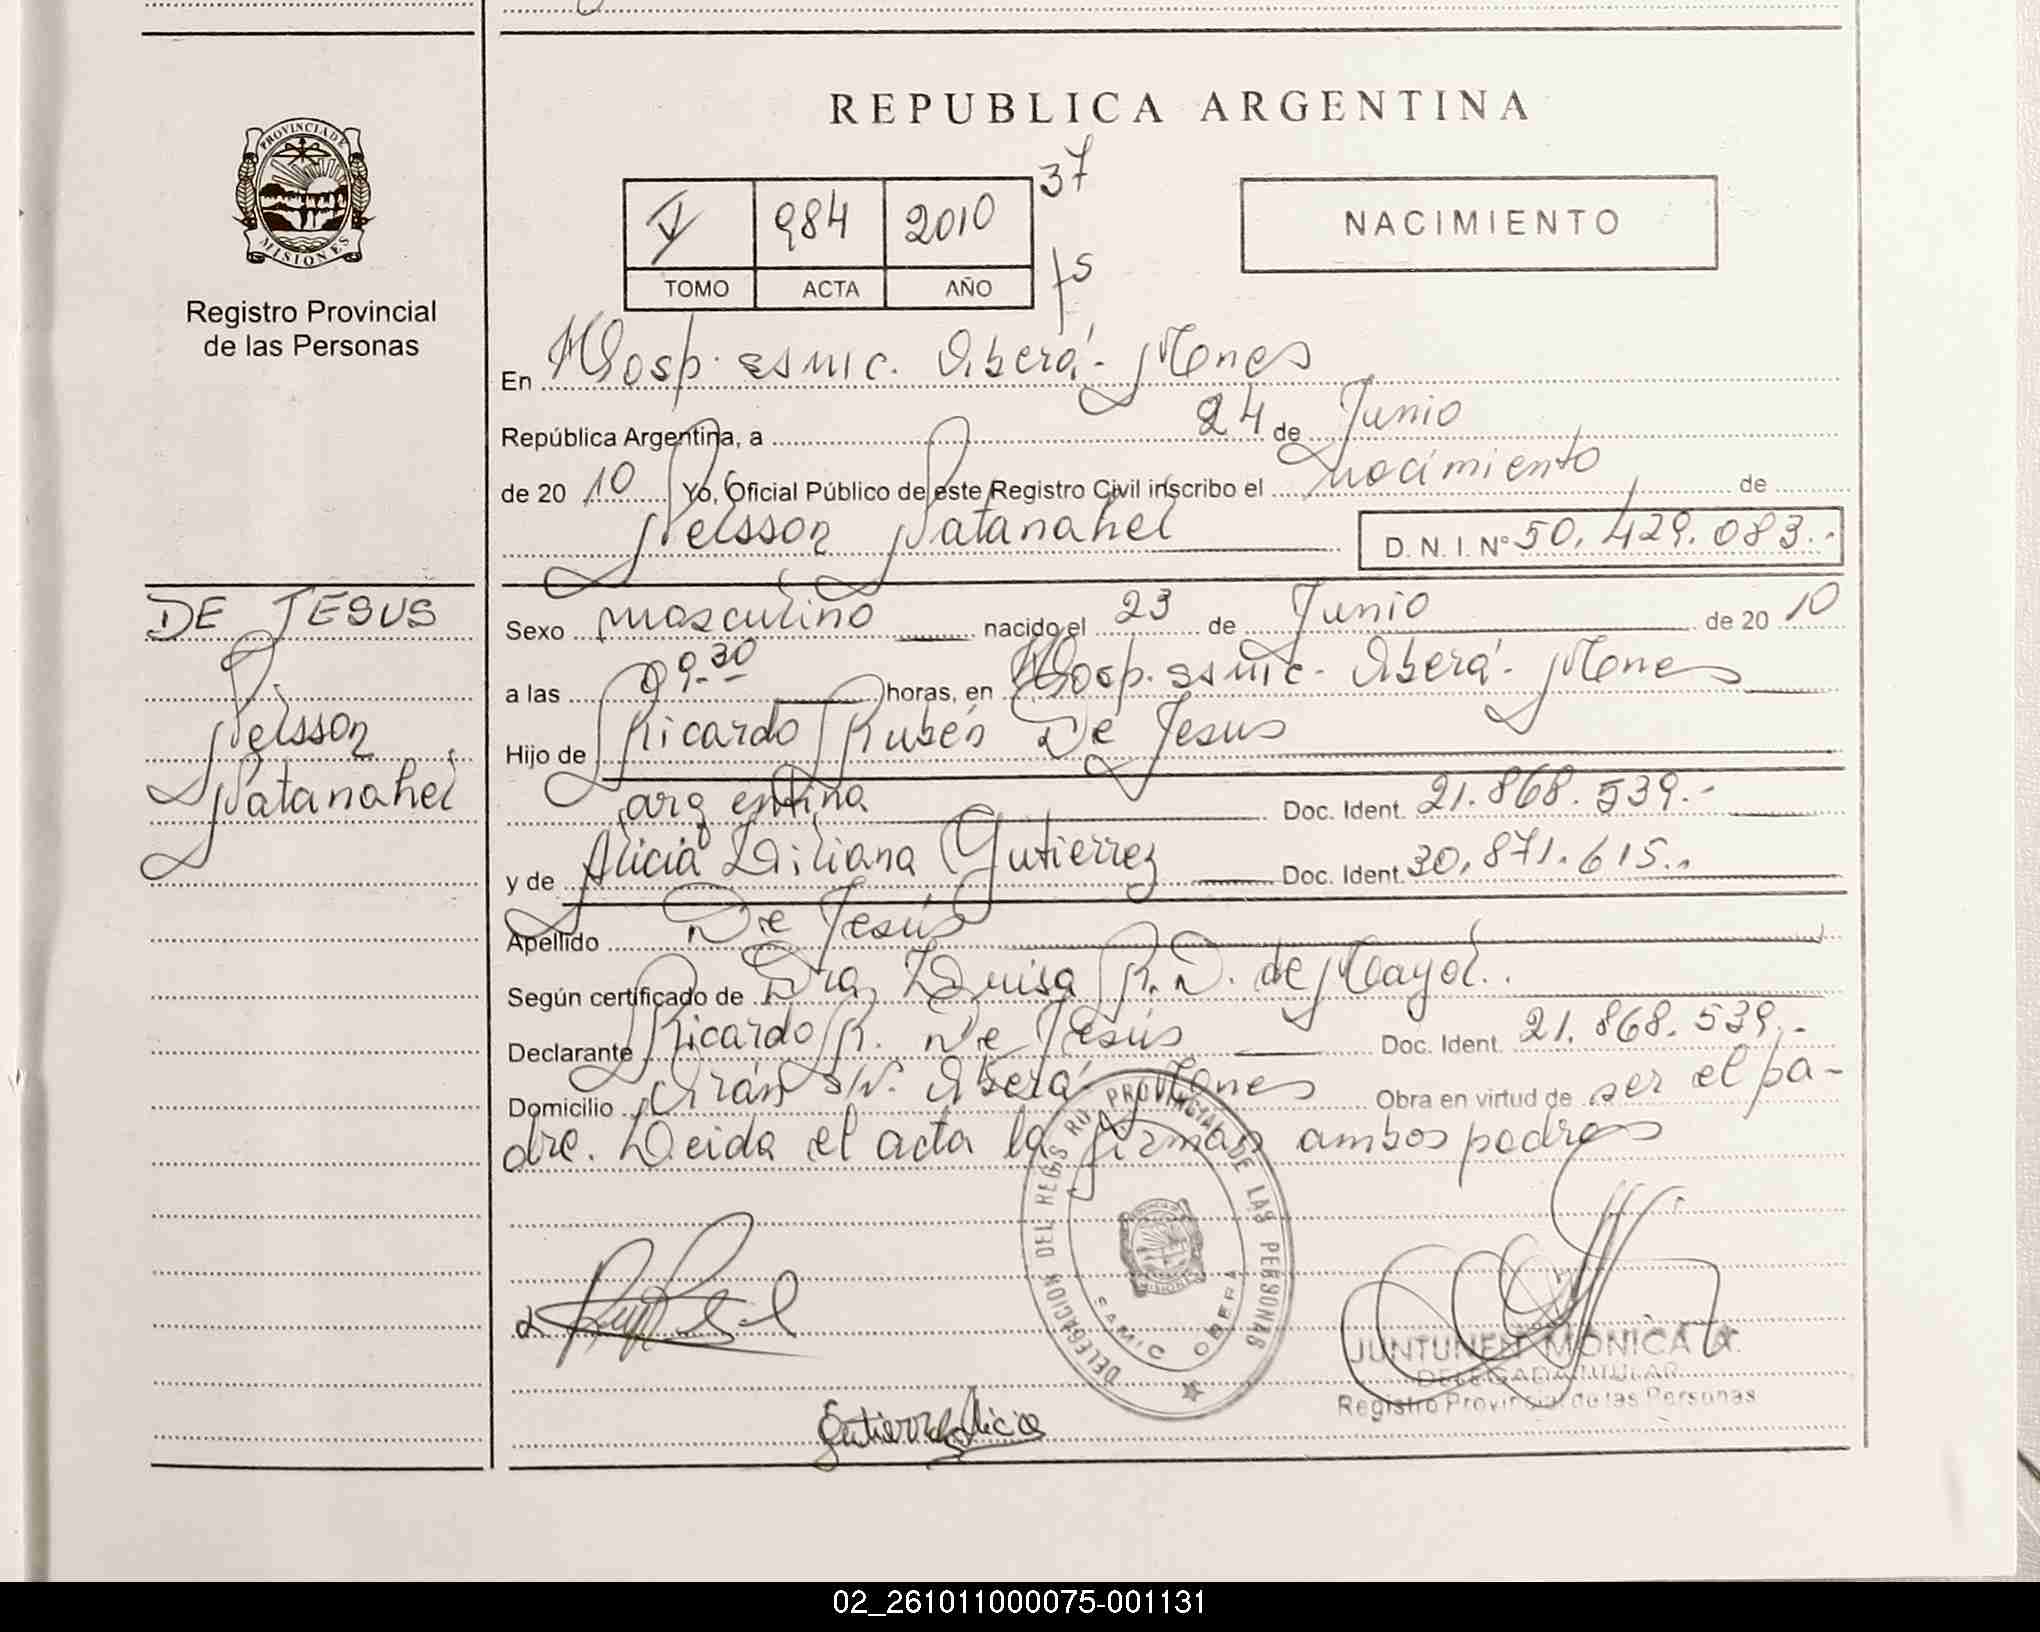 REPUBLICA ARGENTINA
PROVINCIA DE
MISIONES
Registro Provincial
de las Personas
V 984 2010 37
TOMO ACTA AÑO fs
NACIMIENTO
En Hosp. SAMIC. Oberá - Mones
República Argentina, a 24 de Junio
de 20 10 Yo, Oficial Público de este Registro Civil inscribo el nacimiento de
Neisson Natanahel D. N. I. Nº 50.429.083.-
DE JESUS
Neisson
Natanahel
Sexo masculino nacido el 23 de Junio de 20 10
a las 09.30 horas, en Hosp. SAMIC - Oberá - Mones
Hijo de Ricardo Rubén De Jesus
argentina Doc. Ident. 21.868.539.-
y de Alicia Liliana Gutierrez Doc. Ident. 30.871.615.-
Apellido De Jesús
Según certificado de Dra. Luisa R. D. de Mayol.
Declarante Ricardo R. De Jesús Doc. Ident. 21.868.539.-
Domicilio Orán S/Nº Oberá - Mones Obra en virtud de ser el pa-
dre. Leida el acta la firman ambos padres
DELEGACION DEL REGISTRO PROVINCIAL DE LAS PERSONAS
SAMIC OBERA
Gutierrez Alicia
JUNTUNEN MONICA
DELEGADA TITULAR
Registro Provincial de las Personas
02_261011000075-001131